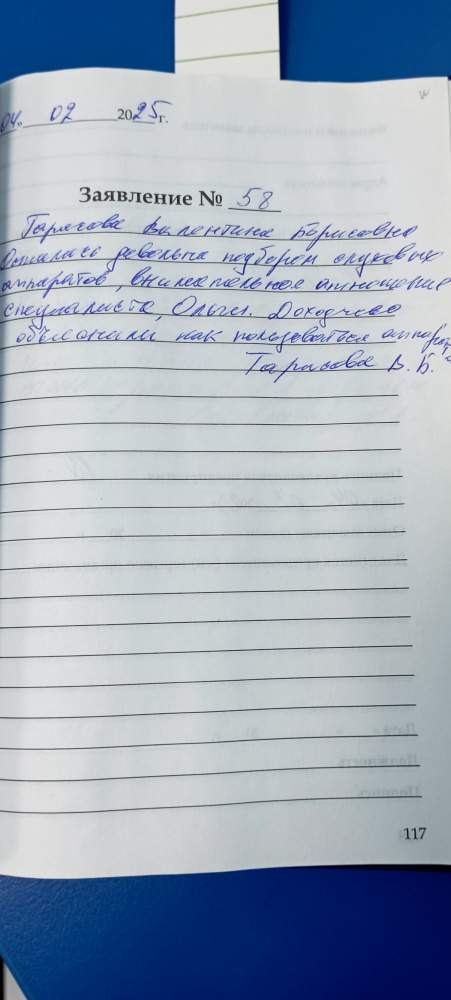 04 » 02 2025 г.
Заявление № 58
Тарасова Валентина Борисовна
Осталась довольна подбором слуховых
аппаратов, внимательное отношение
специалиста, Ольги. Доходчиво
объяснили как пользоваться аппарат
Тарасова В. Б.
117